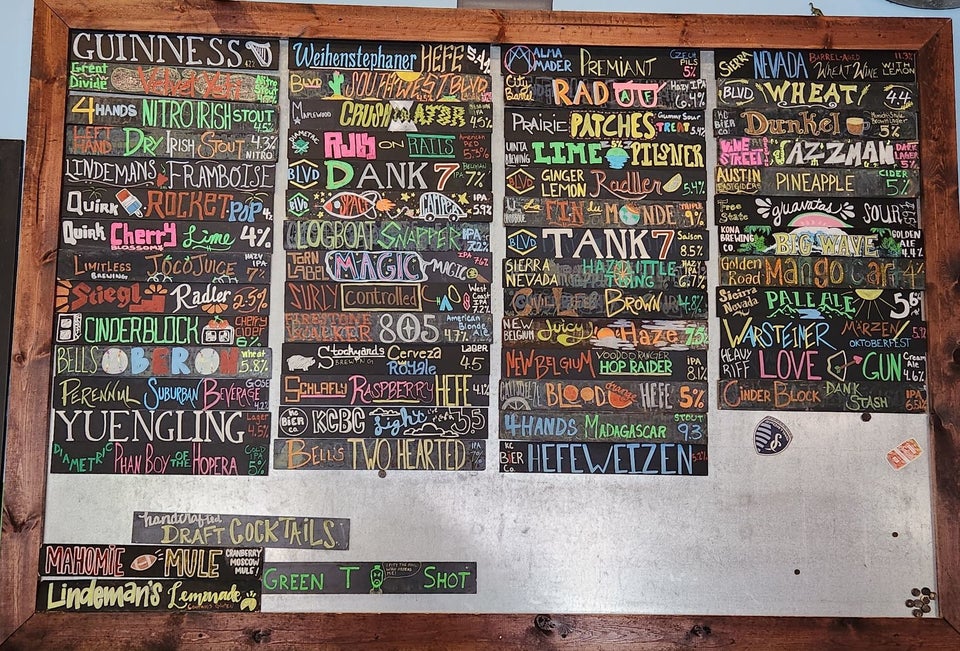 GUINNESS 4.2%
Great Divide Velvet Yeti Nitro Stout
4 HANDS NITRO IRISH STOUT 4.5%
LEFT HAND DRY IRISH STOUT 4.3% NITRO
LINDEMANS FRAMBOISE
QUIRK ROCKET POP 4%
Quirk Cherry Blossoms Lime 4%
LIMITLESS BREWING JOCO JUICE HAZY IPA 7%
Stiegl Radler 2.5%
CINDERBLOCK CHERRY
BELLS OBERON wheat 5.8%
PERENNIAL SUBURBAN BEVERAGE GOSE 4.2%
YUENGLING Lager 4.5%
DIAMETRIC PHAN BOY OF THE HOPERA COLD IPA 5%
Weihenstephaner HEFE 5.4
BLVD SOUTHWEST BLVD
MAPLEWOOD CRUSHINATOR 4.5%
DIAMETRIC RJ'S ON RAILS American RED 5.3%
BLVD DANK 7 BELGIAN IPA 7%
BLVD SPACE CAMPER IPA 5.9%
LOGBOAT SNAPPER IPA 7.2%
TORN LABEL MAGIC MAGIC IPA 7.6%
SURLY Controlled West Coast IPA 7.2%
FIRESTONE WALKER 805 American Blonde Ale 4.7%
Stockyards BREWING Cerveza Royale Lager 4.5
SCHLAFLY RASPBERRY HEFE 4.1%
KC BIER CO KCBC Light 3.5
BELL'S TWO HEARTED IPA 7%
ALMA MADER PREMIANT CZECH PILS 5%
City Barrel RAD AF HAZY IPA 6.4%
PRAIRIE PATCHES Gummy Sour TREAT 5.4%
UINTA BREWING LIME PILSNER 5%
BLVD GINGER LEMON Radler 5.4%
UNIBROUE LA FIN DU MONDE TRIPLE 9%
BLVD TANK 7 Saison 8.5%
SIERRA NEVADA HAZY LITTLE THING 6.7%
BROWN 4.8%
NEW BELGIUM JUICY HAZE 7.5%
NEW BELGIUM VOODOO RANGER HOP RAIDER IPA 8.1%
BLOOD HEFE 5%
4 HANDS MADAGASCAR STOUT 9.3
KC BIER Co. HEFEWEIZEN 5.2%
SIERRA NEVADA BARREL-AGED WHEAT WINE WITH LEMON 11.3%
BLVD WHEAT 4.4
KC BIER CO Dunkel 5%
VINE STREET JAZZMAN DARK LAGER
AUSTIN EASTCIDERS PINEAPPLE CIDER 5%
Free State guavatas SOUR
KONA BREWING BIG WAVE GOLDEN ALE 4.4%
Golden Road Mango Cart 4%
Sierra Nevada PALE ALE 5.6%
WARSTEINER MÄRZEN OKTOBERFEST 5.9
HEAVY RIFF LOVE GUN Cream Ale 4.6%
CINDER BLOCK DANK STASH IPA 6.5%
handcrafted
DRAFT COCKTAILS
MAHOMIE MULE CRANBERRY MOSCOW MULE!
Lindeman's Lemonade
GREEN T SHOT